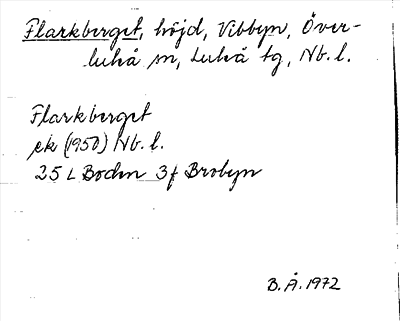 Flarkberget, höjd, Vibbyn, Över-
luleå sn, Luleå tg, Nb. l.
Flarkberget
ek (1950) Nb. l.
25 L Boden 3f Brobyn
B. Å. 1972